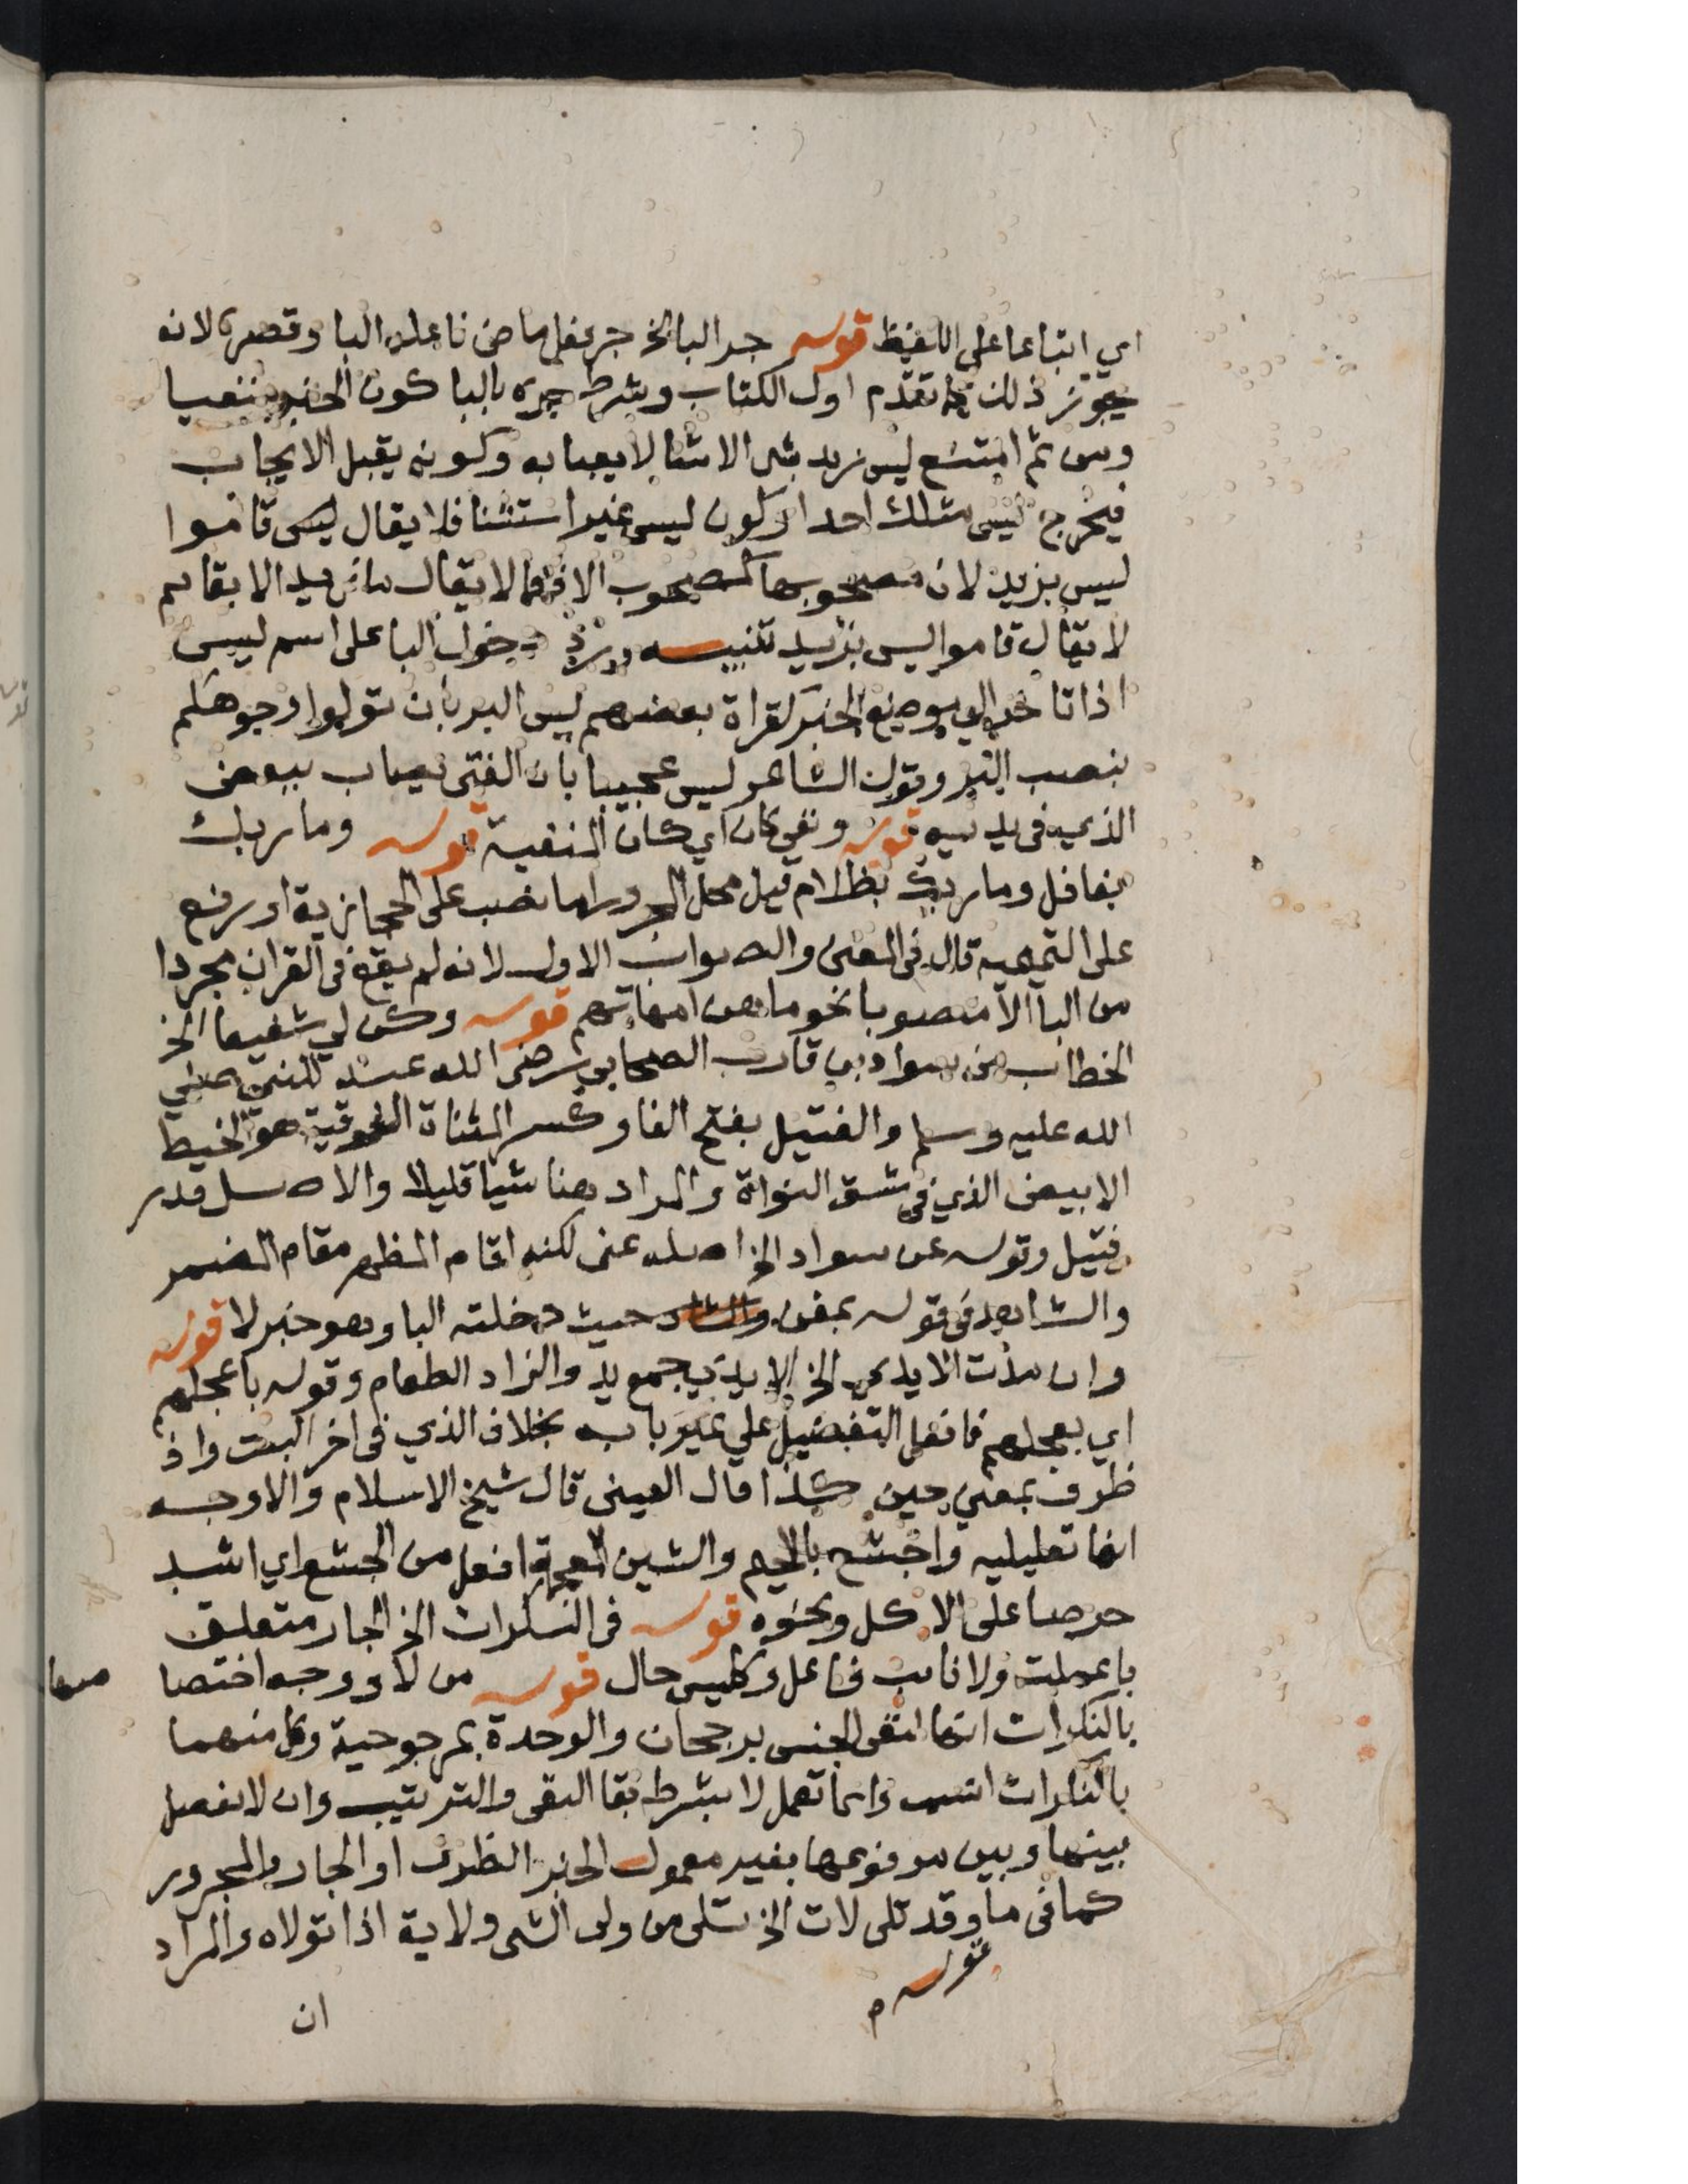 اي اتباعا على اللفيظ قوله جر البا الخ جر فعل ماض فاعله البا وقصره لانه
يجوز ذلك كما تقدم اول الكتاب وشرط جره بالبا كون الخبر منفيا
ومن ثم امتنع ليس زيد بشى الا شيا لا يعبا به وكونه يقبل الايجاب
فيخرج ليس مثلك احد او كون ليس غير استثنا فلا يقال ليس قاموا
ليس بزيد لان مصحوبها كمصحوب الا فكما لا يقال ما زيد الا بقايم
لا يقال قاموا ليس بزيد تنبيه ورد دخول البا على اسم ليس
اذا تاخر الى موضع الخبر كقراة بعضهم ليس البر بان تولوا وجوهكم
بنصب البر وقول الشاعر ليس عجيبا بان الفتى يصاب ببعض
الذي في يديه قوله ونفي كان اي كان المنفية قوله وما ربك
بغافل وما ربك بظلام قيل محل المجرورها نصب على الحجازية او رفع
على التميمية قال فى المغنى والصواب الاول لانه لم يقع فى القران مجردا
من البا الا منصوبا نحو ما هن امهاتهم قوله وكن لي شفيعا الخ
الخطاب من سواد بن قارب الصحابي رضى الله عنه للنبي صلي
الله عليه وسلم والفتيل بفتح الفا وكسر المثناة الفوقية هو الخيط
الابيض الذي في شق النواة والمراد هنا شيا قليلا والاصل قدر
فتيل وقوله عن سواد الخ اصله عنى لكنه اقام المظهر مقام المضمر
والشاهد فى قوله بمغن حيث دخلته البا وهو خبر لا قوله
وان مدت الايدي الخ الايدي جمع يد والزاد الطعام وقوله باعجلهم
اي بعجلهم فافعل التفضيل على غير بابه بخلاف الذي فى اخر البيت واذ
ظرف بمعني حين كذا قال العينى قال شيخ الاسلام والاوجه
انها تعليليه واجشع بالجيم والشين المعجمة افعل من الجشع اي اشد
حرصا على الاكل ونحوه قوله فى النكرات الخ الجار متعلق
باعملت ولا نايب فاعل وكليس حال قوله من لا ووجه اختصا صها
بالنكرات انها لنفى الجنس برجحان والوحدة بمرجوحية وكل منهما
بالنكرات انسب وانما تعمل لا بشرط بقا النفى والترتيب وان لا يفصل
بينها وبين مرفوعها بغير معمول الخبر الظرف او الجار والمجرور
كما فى ما وقد تلى لات الخ تلى من ولى الشى ولاية اذا تولاه والمراد
قوله
ان